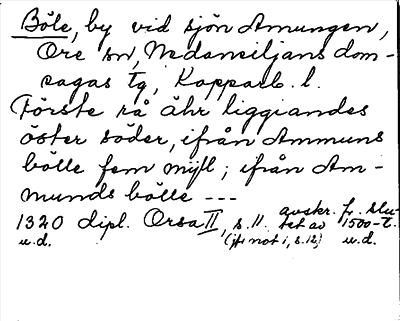 Böle, by vid sjön Amungen,
Ore sn, Nedansiljans dom-
sagas tg, Kopparb. l.
Förste rå ähr liggiandes
öster söder, ifrån Ammuns
bölle fem mijl; ifrån Am-
munds bölle ---
1320 dipl. Orsa II, s. 11. avskr. fr. slu-
tet av 1500-t.
u.d. (jfr not 1, s. 12) u.d.